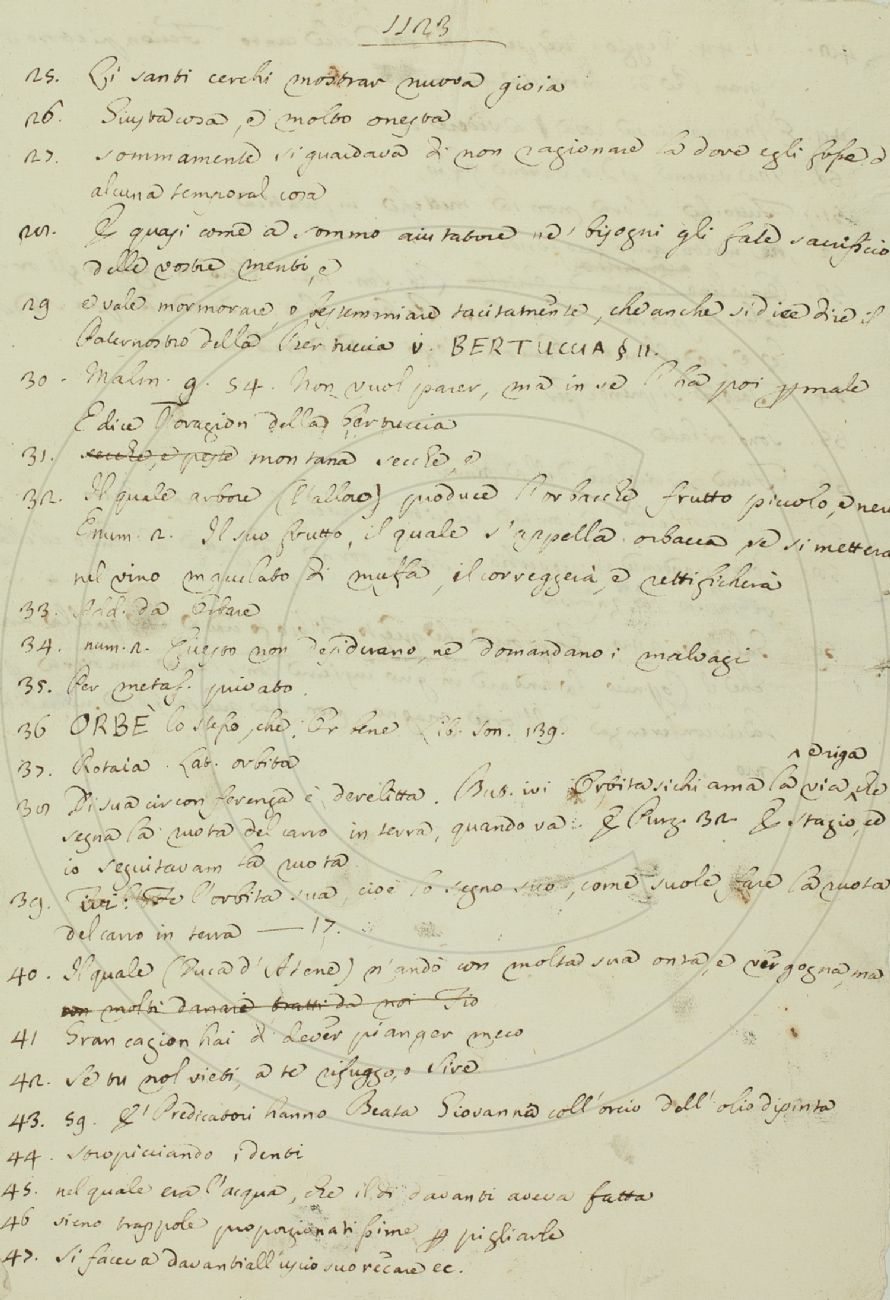 1123
25. Li santi cerchi mostrar nuova gioia
26. Giusta cosa, e molto onesta
27. sommamente si guardava di non ragionare là dove egli fosse d
alcuna temporal cosa
28. & quasi come a sommo aiutatore ne' bisogni gli fate sacrificio
delle vostre menti, e
29 e vale mormorare, o bestemmiare tacitamente, che anche si dice dire il
Paternostro della Bertuccia v. BERTUCCIA § II.
30. Malm. 9. 54. Non vuol parer, ma in se l'ha poi per male
E dice l'orazion della bertuccia
31. secche, e peste montana secche, e
32. Il quale arbore (l'alloro) produce l'orbacche frutto piccolo, e ner
Enum. 2. Il suo frutto, il quale s'appella orbacca se si metterà
nel vino maculato di muffa, il correggerà, e rettificherà
33. Add. da Orbare
34. num. 2. Questo non desiderano, nè domandano i malvagi
35. Per metaf. privato.
36 ORBÈ lo stesso, che; Or bene Lib. son. 139.
37. Rotaia. Lat. orbita
^ e riga
38 Di sua circonferenza è derelitta. But. ivi Orbita si chiama la via, che
segna la ruota del carro in terra, quando va. & Purg. 32 & Stazio, ed
io seguitavam la ruota
39. l'orbita sua, cioè lo segno suo, come suole fare la ruota
del carro in terra — 17.
40. Il quale (Duca d'Atene) n'andò con molta sua onta, e vergogna, ma
con molti danari tratti da noi
41 Gran cagion hai di dever pianger meco
42. Se tu nol vieti, a te rifuggo, o Sire
43. 59. & I Predicatori hanno Beata Giovanna coll'orcio dell'olio dipinta
44. stropicciando i denti
45. nel quale era l'acqua, che il dì davanti aveva fatta
46 sieno trappole proporzionatissime per pigliarle
47. Si faceva davanti all'uscio suo recare ec.